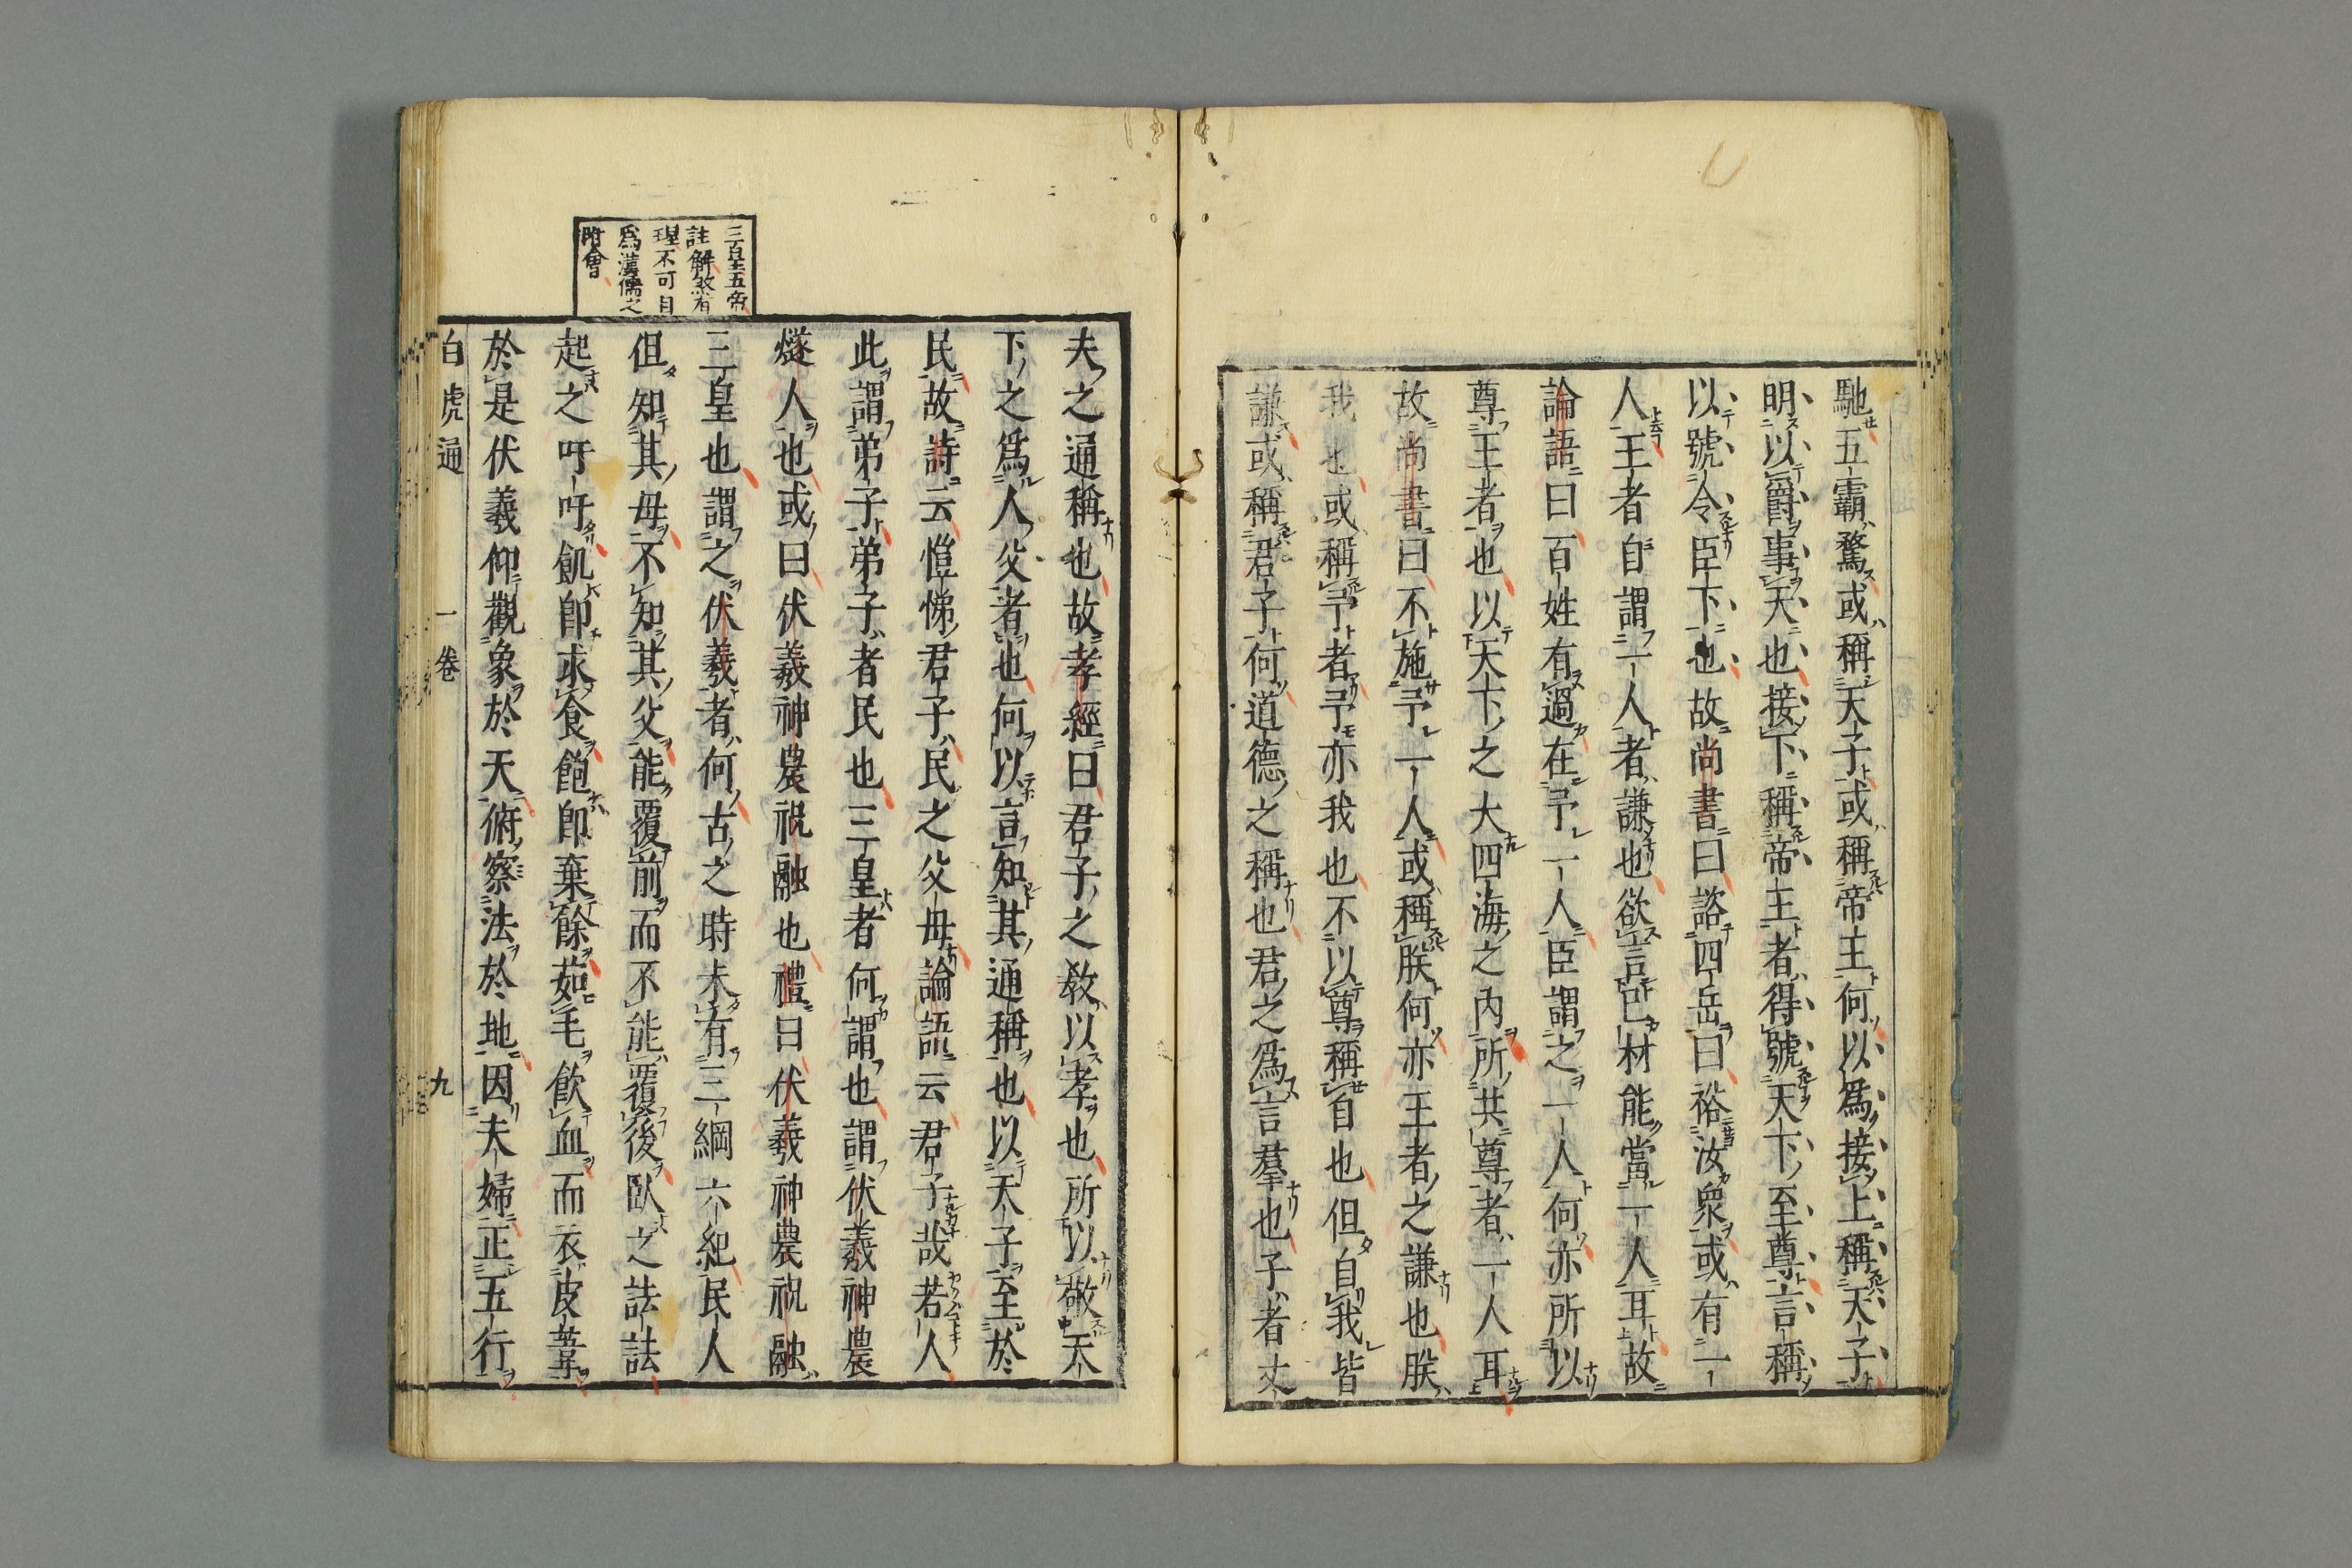 馳五霸騖或稱天子或稱帝王何以爲接上稱天子
明以爵事天也接下稱帝王者得號天下至尊言稱
以號令臣下也故尚書曰諮四岳曰裕汝衆或有一
人王者自謂一人者謙也欲言己材能當一人耳故
論語曰百姓有過在予一人臣謂之一人何亦所以
尊王者也以天下之大四海之內所共尊者一人耳
故尚書曰不施予一人或稱朕何亦王者之謙也朕
我也或稱予者予亦我也不以尊稱自也但自我皆
謙或稱君子何道德之稱也君之爲言羣也子者丈
夫之通稱也故孝經曰君子之敎以孝也所以敬天
下之爲人父者也何以言知其通稱也以天子至於
民故詩云愷悌君子民之父母論語云君子哉若人
此謂弟子弟子者民也三皇者何謂也謂伏羲神農
燧人也或曰伏羲神農祝融也禮曰伏羲神農祝融
三皇也謂之伏羲者何古之時未有三綱六紀民人
但知其母不知其父能覆前而不能覆後臥之詓詓
起之吁吁飢卽求食飽卽棄餘茹毛飮血而衣皮葦
於是伏羲仰觀象於天俯察法於地因夫婦正五行
三皇五帝
註解煞有
理不可目
爲漢儒之
附會
白虎通 一卷 九